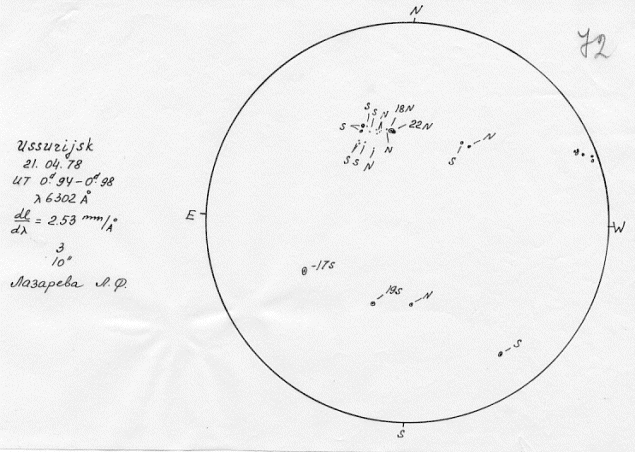 N
72
Ussurijsk
21.04.78
UT 0ᵈ.94–0ᵈ.98
λ6302 Å
dl/dλ = 2.53 mm/Å
3
10"
Лазарева Л.Ф.
S S N 18N
S 22N
S S N N
S N
E
W
-17S
19S N
S
S